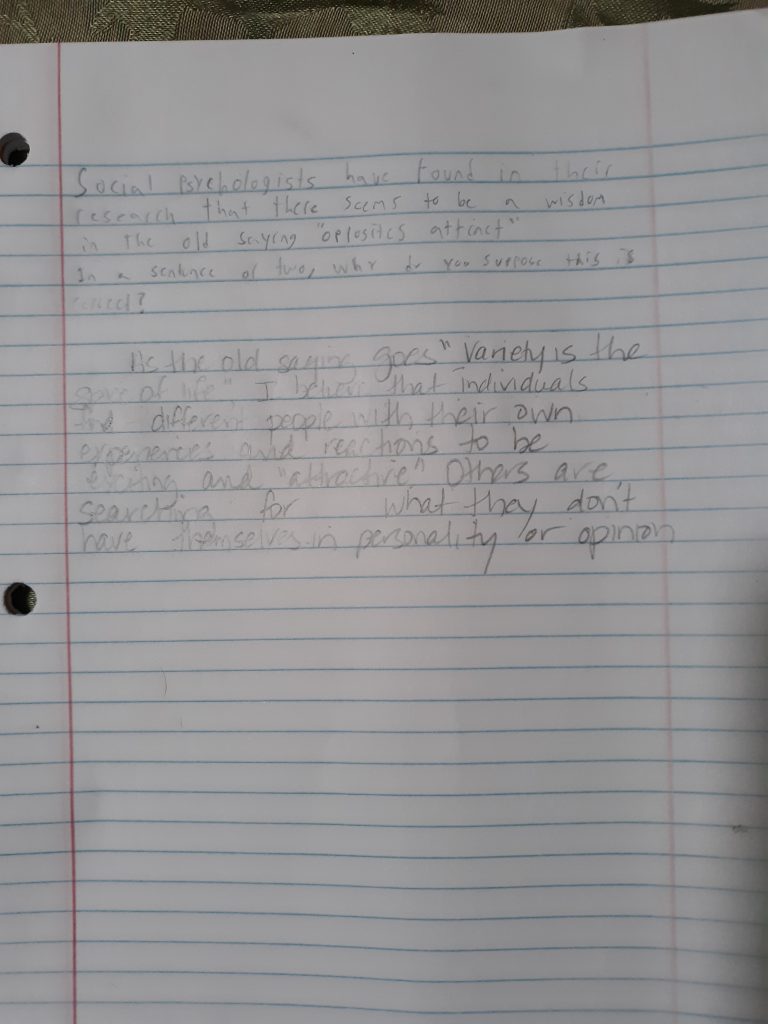 Social Psychologists have found in their
research that there seems to be a wisdom
in the old saying "opposites attract"
In a sentence or two, why do you suppose this is
correct?
As the old saying goes "Variety is the
of life", I believe that individuals
find different people with their own
experiences and reactions to be
exciting and "attractive" Others are
searching for what they don't
have themselves in personality or opinion